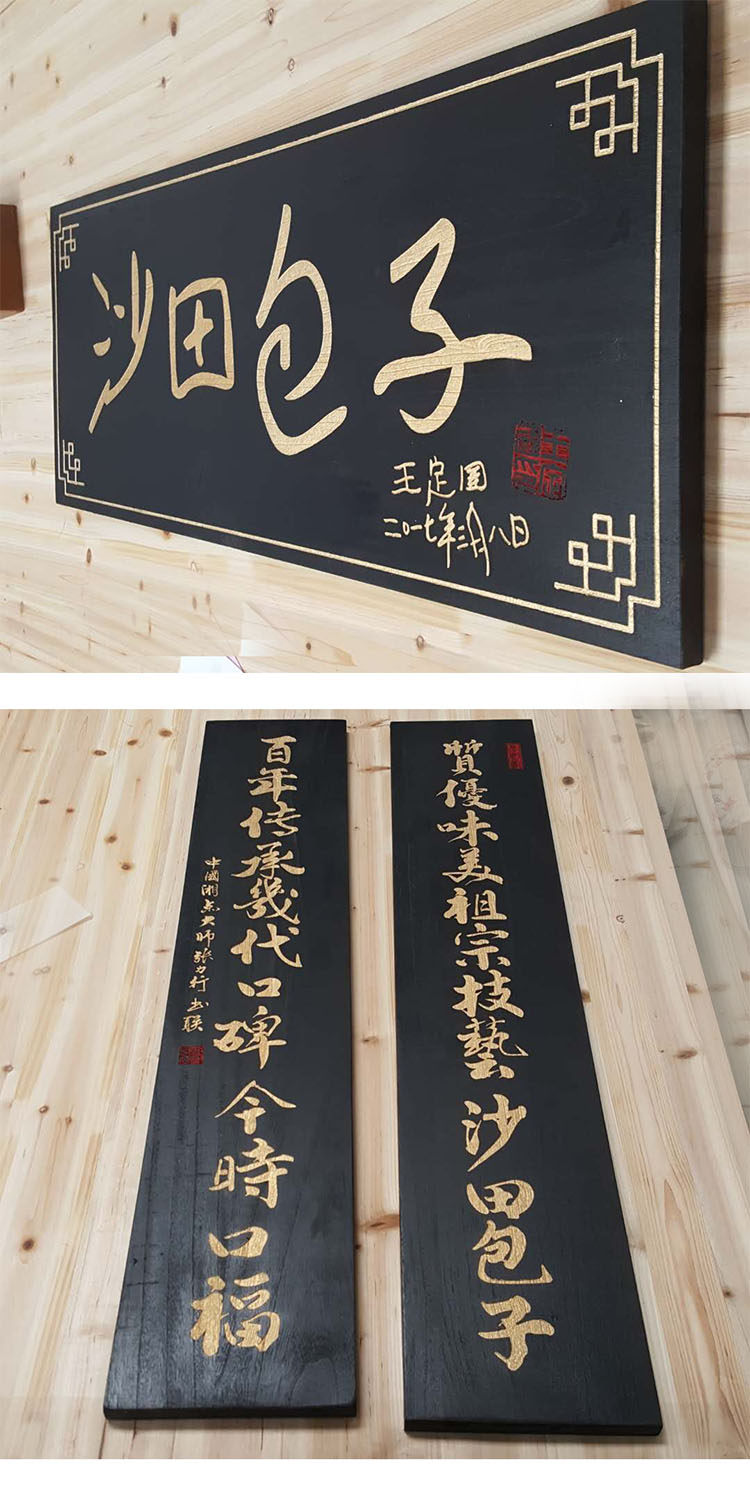 沙田包子
王定國
二〇一七年三月八日
質優味美祖宗技藝沙田包子
百年传承幾代口碑今時口福
中國湘点大师張力行书联